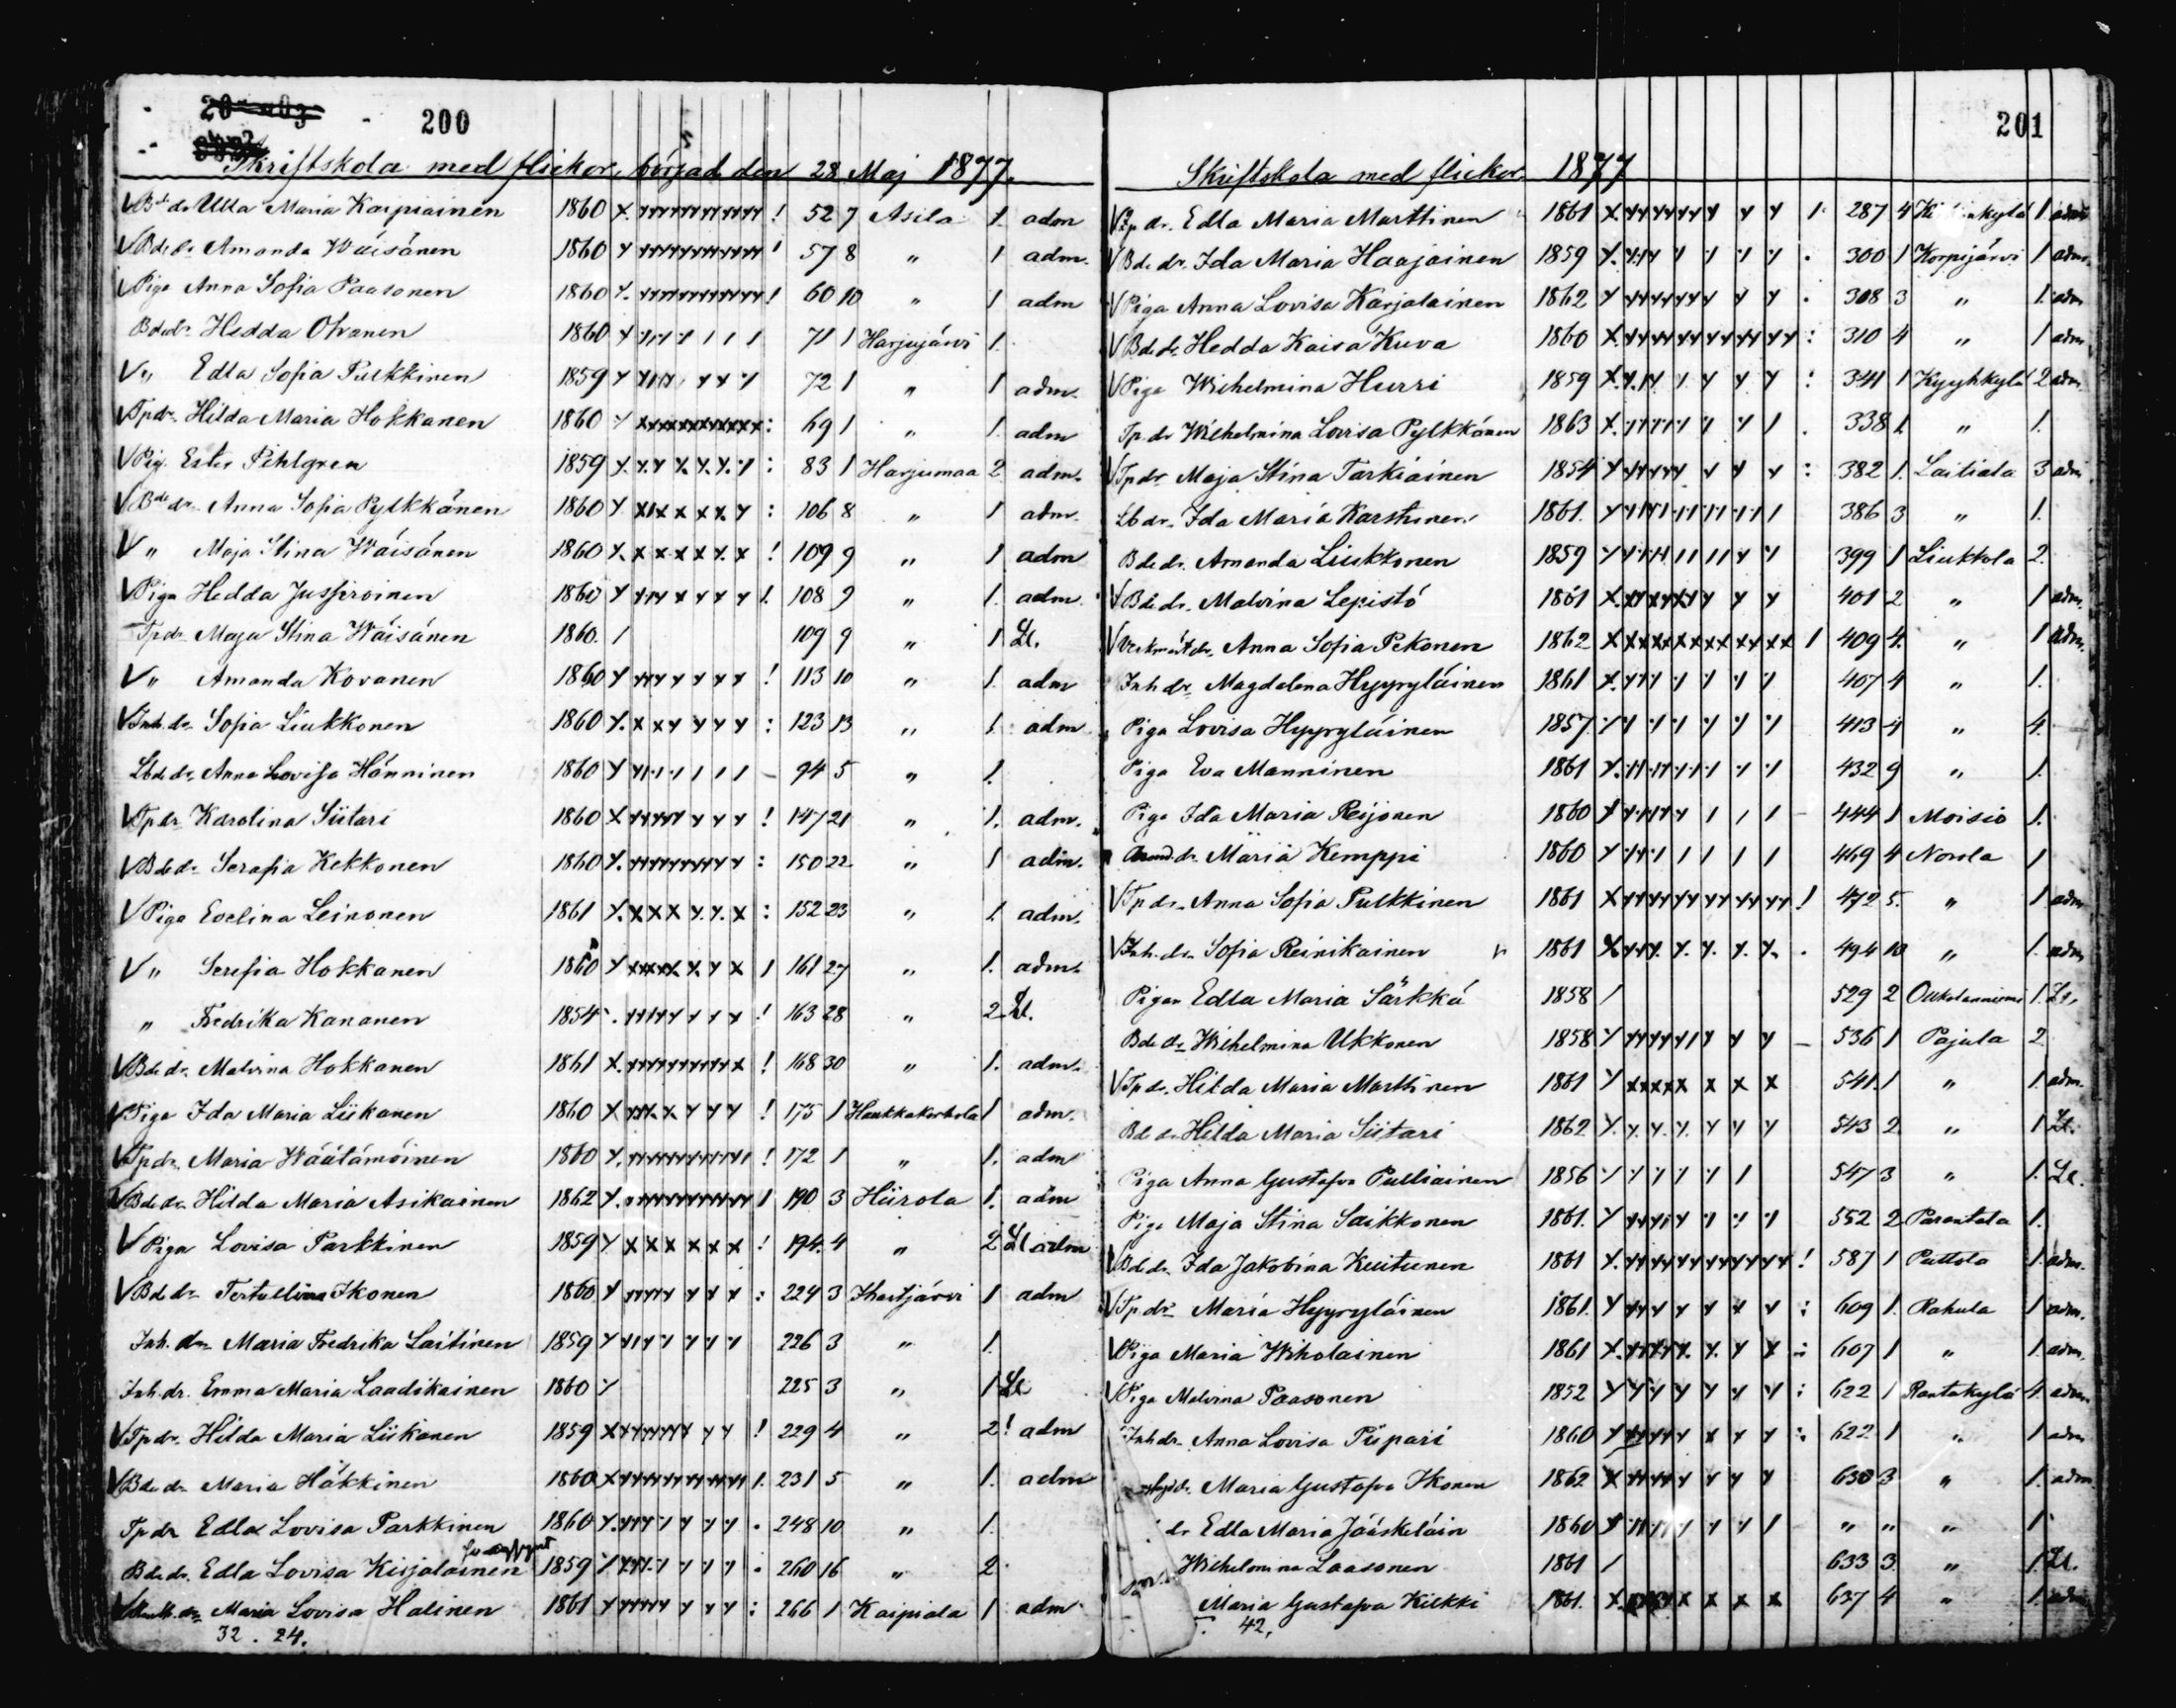 200
Skriftskola med flickor, börjad den 28 Maj 1877.
Bde dr Ulla Maria Karpiainen 1860 52 7 Asila 1. adm
Bde dr Amanda Wäisänen 1860 57 8 " 1 adm.
Piga Anna Sofia Paasonen 1860 60 10 " 1 adm
Bde dr Hedda Ohvanen 1860 71 1 Harjujärvi 1.
" Edla Sofia Pulkkinen 1859 72 1 " 1 adm.
Tp dr. Hilda Maria Hokkanen 1860 69 1 " 1. adm
Pig. Ester Pihlgren 1859 83 1 Harjumaa 2 adm.
Bde dr Anna Sofia Pylkkänen 1860 106 8 " 1 adm.
" Maja Stina Wäisänen 1860 109 9 " 1. adm
Piga Hedda Jussiroinen 1860 108 9 " 1. adm.
Tp dr. Maja Stina Wäisänen 1860. 109 9 " 1 Ll.
" Amanda Kovanen 1860 113 10 " 1. adm
Inh. dr Sofia Liukkonen 1860 123 13 " 1. adm
Lbde dr. Anna Lovisa Hänninen 1860 94 5 " 1.
Tp dr Karolina Siitari 1860 147 21 " 1. adm.
Bde dr Serafia Kekkonen 1860 150 22 " 1 adm.
Piga Evelina Leinonen 1861 152 23 " 1. adm.
" Serefia Hokkanen 1860 161 27 " 1. adm.
" Fredrika Kananen 1854 163 28 " 2 Ll.
Bde dr. Malvina Hokkanen 1861 168 30 " 1. adm.
Piga Ida Maria Liikanen 1860 175 1 Haukkakorhola 1 adm.
Tp dr. Maria Wäätämöinen 1860 172 1 " 1. adm
Bde dr. Hilda Maria Asikainen 1862 190 3 Hiirola 1. adm
Piga Lovisa Parkkinen 1859 194. 4 " 2 Ll adm
Bde dr Tertullina Ikonen 1860 224 3 Ihastjärvi 1 adm
Inh. dr Maria Fredrika Laitinen 1859 226 3 " 1.
Inh. dr. Emma Maria Laadikainen 1860 225 3 " 1 Ll
Tp dr. Hilda Maria Liikanen 1859 229 4 " 2! adm
Bde dr Maria Häkkinen 1860 231 5 " 1. adm
Tp dr Edla Lovisa Parkkinen 1860 248 10 " 1.
Bde dr. Edla Lovisa Kirjalainen 1859 260 16 " 2.
Maria Lovisa Halinen 1861 266 1 Kaipiala 1 adm
32. 24.
201
Skriftskola med flickor 1877
Tp dr. Edla Maria Marttinen 1861 287 4 1 adm
Bde dr. Ida Maria Haajainen 1859 300 1 Korpijärvi 1 adm.
Piga Anna Lovisa Karjalainen 1862 308 3 " 1. adm
Bde dr. Hedda Kaisa Kuva 1860 310 4 " 1 adm
Piga Wihelmina Hurri 1859 341 1 Kyyhkylä 2 adm.
Tp. dr Wilhelmina Lovisa Pylkkänen 1863 338 1. " 1.
Tp dr Maja Stina Tarkiainen 1854 382 1. Laitiala 3 adm
Lb dr. Ida Maria Karstunen 1861. 386 3 " 1.
Bde dr. Amanda Liukkonen 1859 399 1 Liukkola 2.
Bde dr. Malvina Lepistö 1861 401 2 " 1 adm.
Verkmäst dr. Anna Sofia Pekonen 1862 409 4. " 1 adm.
Inh dr Magdalena Hyyryläinen 1861 407 4 " 1.
Piga Lovisa Hyyryläinen 1857 413 4 " 4.
Piga Eva Manninen 1861 432 9 " 1.
Piga Ida Maria Reijonen 1860 444 1 Moisio 1.
dr. Maria Kemppi 1860 469 4 Norola 1
Tp dr. Anna Sofia Pulkkinen 1861 472 5. " 1 adm
Inh. dr. Sofia Reinikainen 1861 494 10 " 1. adm
Pigan Edla Maria Särkkä 1858 529 2 Oukolanniemi 1. Ll.
Bde dr Wihelmina Ukkonen 1858 536 1 Pajula 2
Tp dr. Hilda Maria Marttinen 1861 541. 1 " 1. adm.
Bd dr Hilda Maria Siitari 1862 543 2 " 1 Ll.
Piga Anna Gustafva Pulliainen 1856 547 3 " 1. Ll.
Piga Maja Stina Saikkonen 1861. 552 2 Parantala 1.
Bde dr. Ida Jakobina Kuitunen 1861 587 1 Puttola 1. adm.
Tp dr Maria Hyyryläinen 1861. 609 1. Rahula 1 adm.
Piga Maria Wiholainen 1861 607 1 " 1. adm.
Piga Malvina Paasonen 1852 622 1 Rantakylä 4 adm
Inh dr. Anna Lovisa Piipari 1860 622 1 " 1 adm
Maria Gustafva Ikonen 1862 630 3 " 1. adm
dr Edla Maria Jääskeläin 1860 " " " 1
Wilhelmina Laasonen 1861 633 3. " 1. Ll.
Maria Gustafva Kilkki 1861. 637 4 " 1. adm
42.